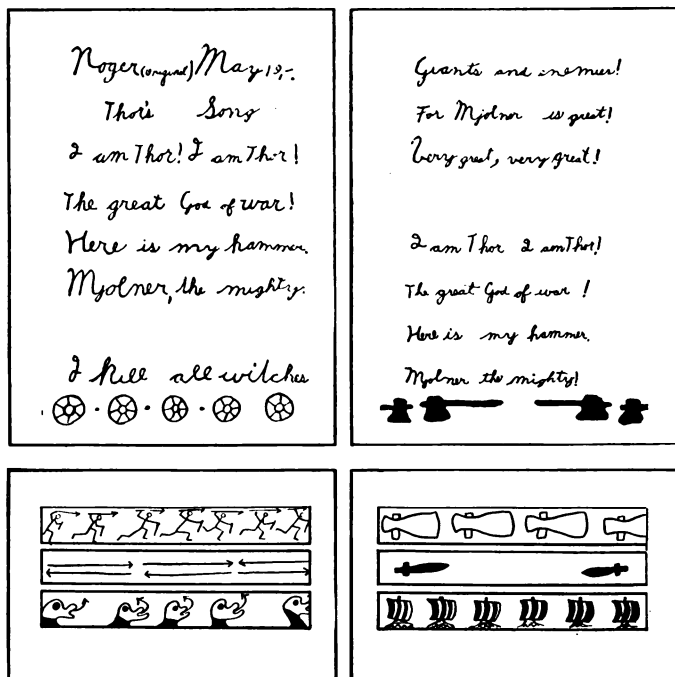 Roger (original) May 19,-.
Thor's Song
I am Thor! I am Thor!
The great God of war!
Here is my hammer.
Mjolner, the mighty.
I kill all witches
Giants and enemies!
For Mjolner is great!
Very great, very great!
I am Thor I am Thor!
The great God of war!
Here is my hammer.
Mjolner the mighty!